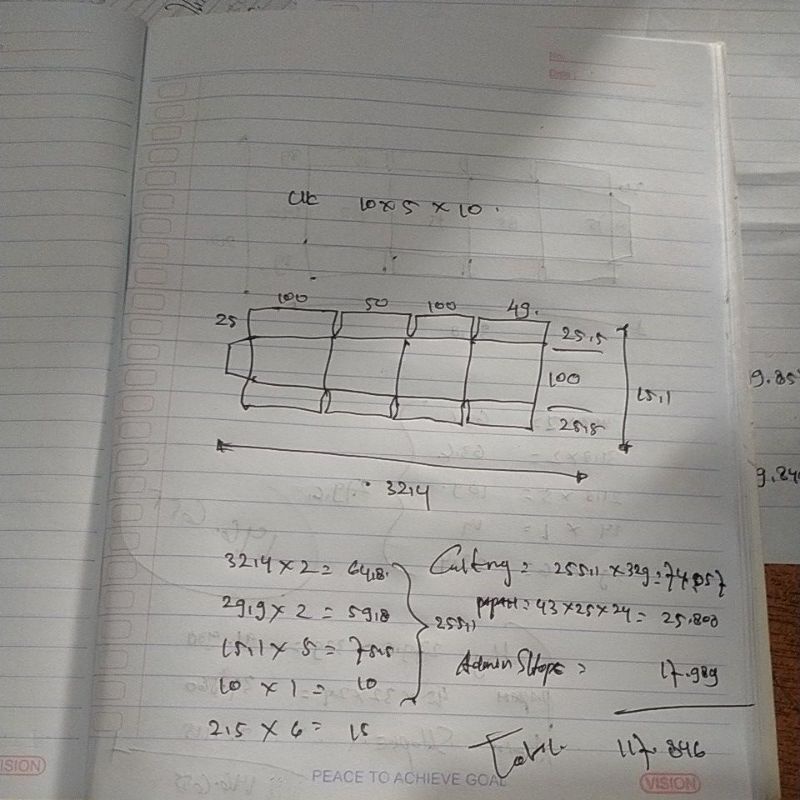 Uk 10 x 5 x 10.
100 50 100 49.
25
25,5
100
25,5
15,1
32,4
32,4 x 2 = 64,8
29,9 x 2 = 59,8
15,1 x 5 = 75,5
10 x 1 = 10
2,5 x 6 = 15
255,1
= 255,1 x 329 =
papan = 43 x 25 x 24 = 25.800
Admin = 17.989
Total 117.846
9.85
9.846
VISION
PEACE TO ACHIEVE GOAL
VISION